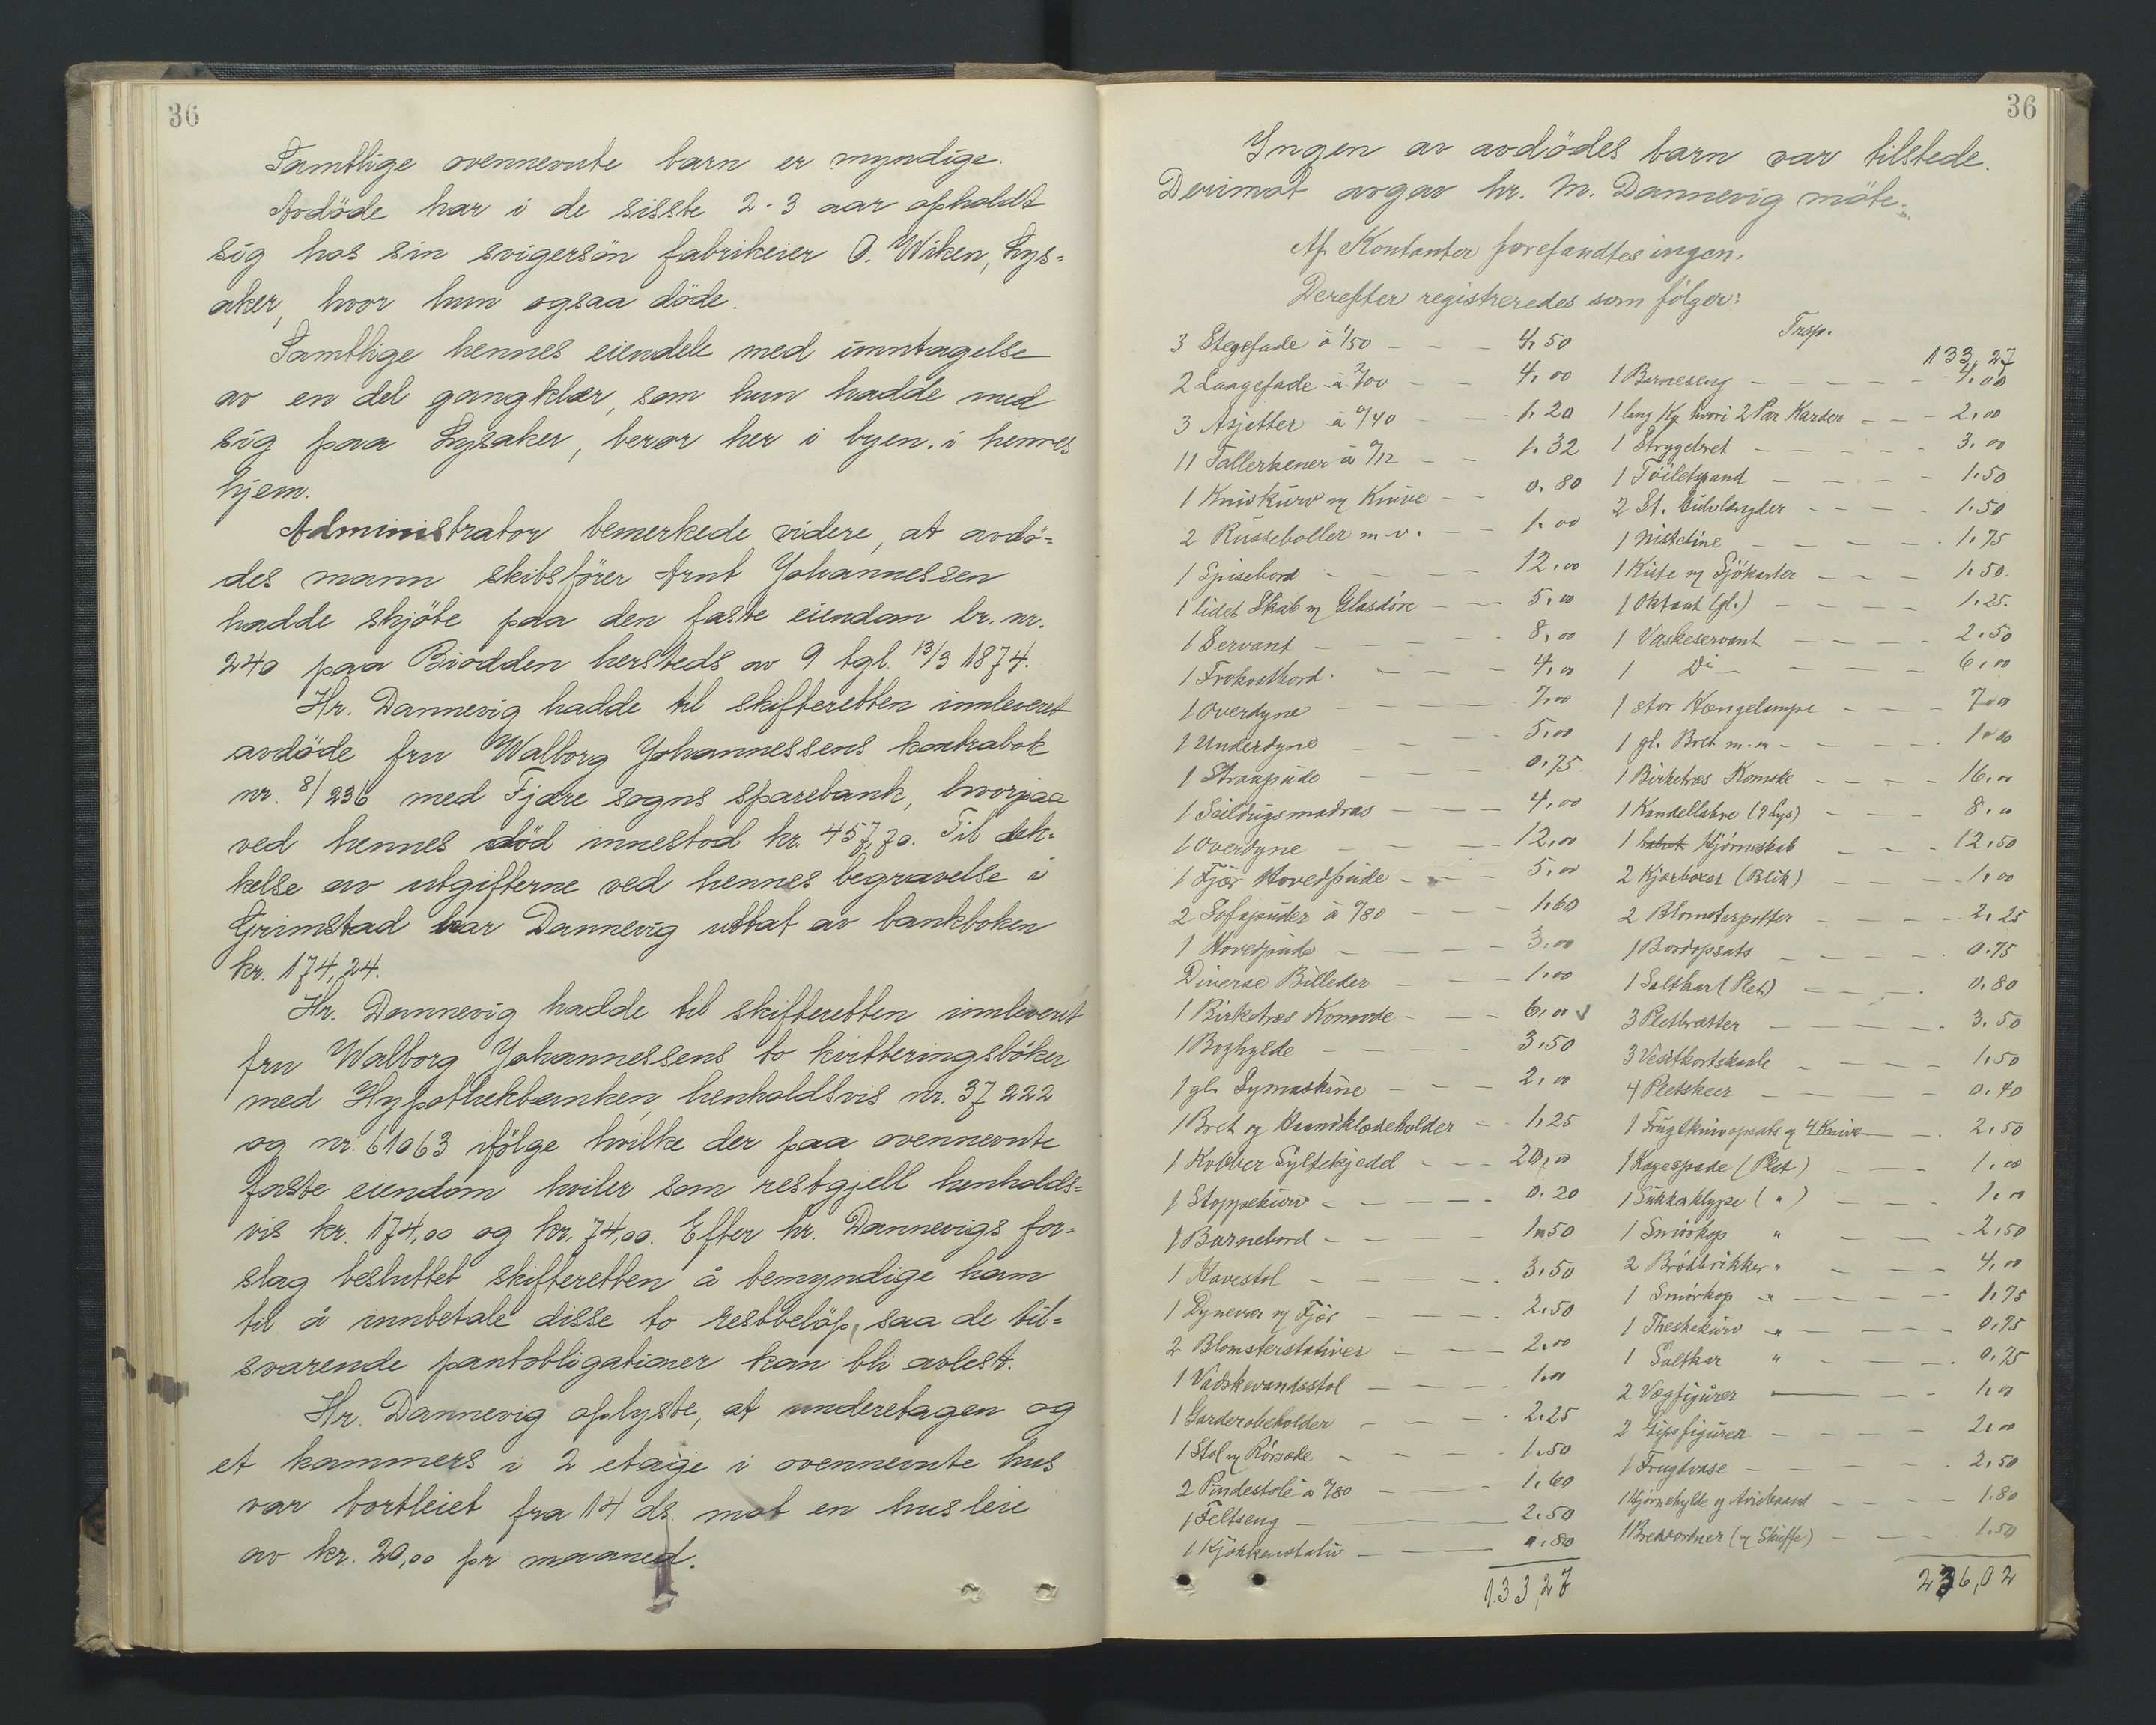 36
Samtlige ovennevnte barn er myndige.
Avdöde har i de sisste 2-3 aar opholdt
sig hos sin svigersön fabrikeier O. Wiken, Lys-
aker, hvor hun ogsaa döde.
Samtlige hennes eiendele med unntagelse
av en del gangklær, som hun hadde med
sig paa Lysaker, beror her i byen i hennes
hjem.
Administrator bemerkede videre, at avdö-
des mann skibsförer Arnt Johannessen
hadde skjöte paa den faste eiendom br. nr.
240 paa Biodden hersteds av 9 tgl. 13/3 1874.
Hr. Dannevig hadde til skifteretten innleveret
avdöde fru Walborg Johannessens kontrabok
nr. 8/236 med Fjære sogns sparebank, hvorpaa
ved hennes död innestod kr. 457,70. Til dek-
kelse av utgifterne ved hennes begravelse i
Grimstad har Dannevig uttat av bankboken
kr. 174,24.
Hr. Dannevig hadde til skifteretten innleveret
fru Walborg Johannessens to kvitteringsböker
med Hypothekbanken, henholdsvis nr. 37222
og nr. 61063 ifölge hvilke der paa ovennevnte
faste eiendom hviler som restgjell henholds-
vis kr. 174,00 og kr. 74,00. Efter hr. Dannevigs for-
slag besluttet skifteretten å bemyndige ham
til å innbetale disse to restbelöp, saa de til-
svarende pantobligationer kan bli avlest.
Hr. Dannevig oplyste, at underetagen og
et kammers i 2 etage i ovennevnte hus
var bortleiet fra 14 ds. mot en husleie
av kr. 20,00 pr maaned.
36
Ingen av avdödes barn var tilstede.
Derimot avgav hr. M. Dannevig möte.
Af Kontanter forefandtes ingen.
Derefter registreredes som fölger:
3 Stegefade à 1/50 - - - 4,50
2 Laagefade à 2/00 - - 4,00
3 Asjetter à 0/40 - - 1,20
11 Tallerkener à 0/12 - - 1,32
1 Knivkurv og Knive - - 0,80
2 Russeboller m.v. - - 1,00
1 Spisebord - - - 12,00
1 lidet Skab m Glasdöre - - 5,00
1 Servant - - - 8,00
1 Frokostbord - - - 4,00
1 Overdyne - - - 7,00
1 Underdyne - - - 5,00
1 Straapude - - - 0,75
1 Seildugsmadras - - - 4,00
1 Overdyne - - - 12,00
1 Fjær Hovedpude - - - 5,00
2 Sofapuder à 0/80 - - - 1,60
1 Hovedpude - - - 3,00
Diverse Billeder - - - 1,00
1 Birketræs Komode - - - 6,00
1 Boghylde - - - 3,50
1 gl. Symaskine - - - 2,00
1 Bret og Haandklædeholder - - 1,25
1 Kobber Syltekjedel - - - 20,00
1 Stoppekurv - - - 0,20
1 Barnebord - - - 1,50
1 Havestol - - - 3,50
1 Dynevar m Fjær - - - 2,50
2 Blomsterstativer - - - 2,00
1 Vadskevandsstol - - - 1,00
1 Garderobeholder - - - 2,25
1 Stol m Rörsæde - - - 1,50
2 Pindestole à 0/80 - - - 1,60
1 Feltseng - 2,50
1 Kjökkenstativ - 0,80
133,27
Trsp. 133,27
1 Barneseng - - - 4,00
1 lang Kg hvori 2 Par Karder - - 2,00
1 Strygebret - - - 3,00
1 Toiletspand - - - 1,50
2 St. - - - 1,50
1 - - - 1,75
1 Kiste m Sjökarter - - - 1,50
1 Oktant (gl.) - - - 1,25
1 Vaskeservant - - - 2,50
1 Do - - - 6,00
1 stor Hængelampe - - - 7,00
1 gl. Bret m.m - - - 1,00
1 Birketræs Komode - - - 16,00
1 Kandellabre (7 Lys) - - - 8,00
1 Hjörneskab - - - 12,50
2 (Blik) - - - 1,00
2 Blomsterpotter - - - 2,25
1 Bordopsats - - - 0,75
1 Saltkar (Plet) - - - 0,80
3 - - - 3,50
3 Vesitkortskaale - - - 1,50
4 Pletskeer - - - 0,40
1 Frugtknivopsats og 4 Knive - 2,50
1 Kagespade (Plet) - - - 1,00
1 Sukkerklype ( " ) - - - 1,00
1 Smörkop " - - - 2,50
2 Brödbrikker " - - - 4,00
1 Smörkop " - - - 1,75
1 Theskekurv " - - - 0,75
1 Saltkar " - - - 0,75
2 Vægfigurer - - 1,00
2 Gipsfigurer - - - 2,00
1 Frugtvase - - - 2,50
1 Hjörnehylde og Avisbaand - - - 1,80
1 Brevordner (m Skuffe) - - - 1,50
236,02